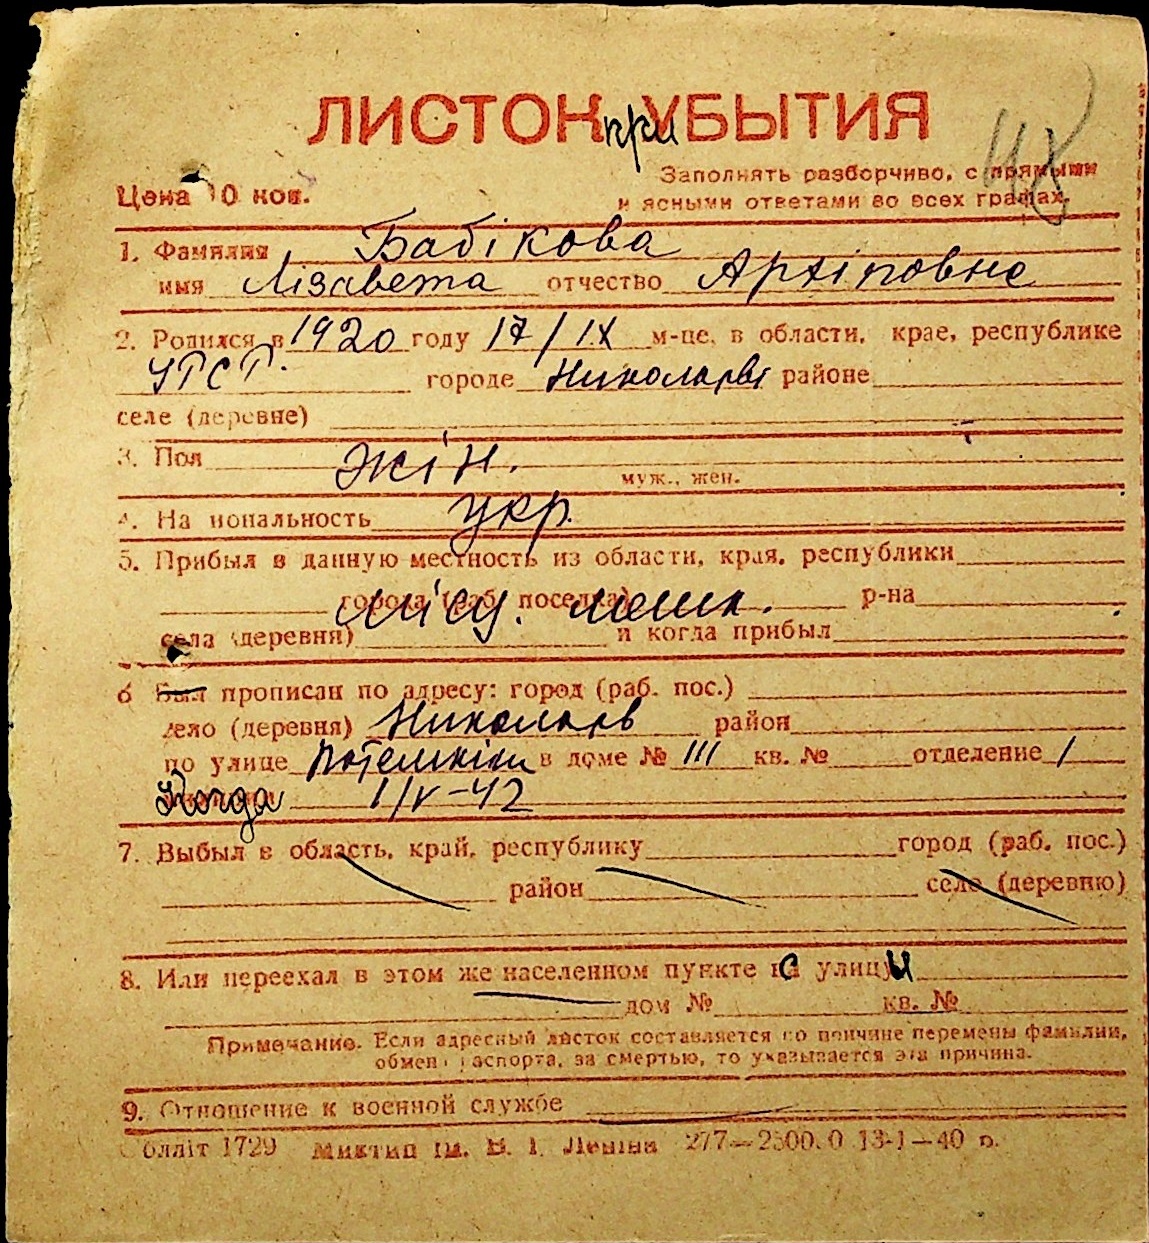 ЛИСТОК при УБЫТИЯ
Заполнять разборчиво, с прямыми
Цена 10 коп. и ясными ответами во всех графах,
1. Фамилия Бабікова
имя Лізавета отчество Архіповна
2. Родился в 1920 году 17/IX м-це, в области, крае, республике
УРСР. городе Николаєві районе
селе (деревне)
3. Пол жін. муж., жен.
4. На иональность укр.
5. Прибыл в данную местность из области, края, республики
города (раб. поселка) місц. меш. р-на
села (деревня) и когда прибыл
6 Был прописан по адресу: город (раб. пос.)
село (деревня) Николаєв район
по улице Потемкін в доме № 111 кв. № отделение 1
Когда 1/V-42
7. Выбыл в область, край, республику город (раб. пос.)
район село (деревню)
8. Или переехал в этом же населенном пункте с улицы
дом № кв. №
Примечание. Если адресный листок составляется по причине перемены фамилии,
обмен паспорта, за смертью, то указывается эта причина.
9. Отношение к военной службе
Облліт 1729 Миктип ім. В. І. Леніна 277—2500.0 13-1—40 р.